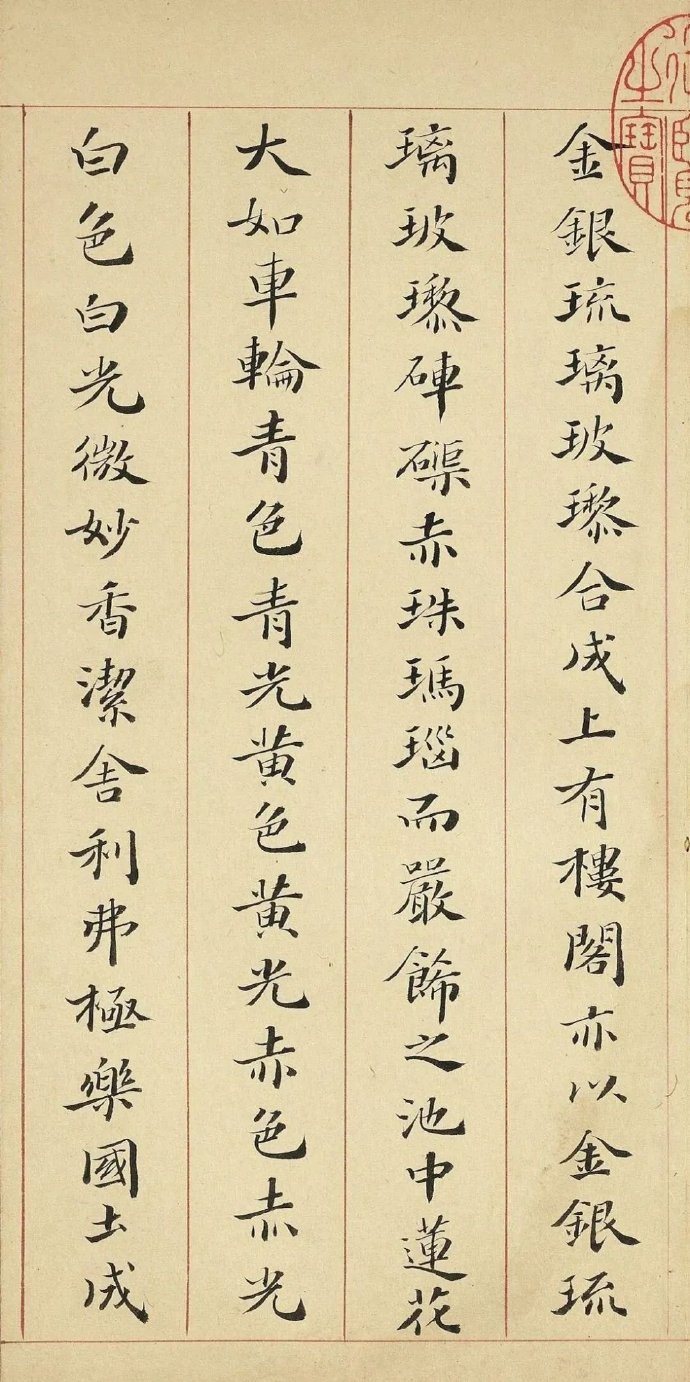 金銀琉璃玻瓈合成上有樓閣亦以金銀琉
璃玻瓈硨磲赤珠瑪瑙而嚴飾之池中蓮花
大如車輪青色青光黃色黃光赤色赤光
白色白光微妙香潔舍利弗極樂國土成